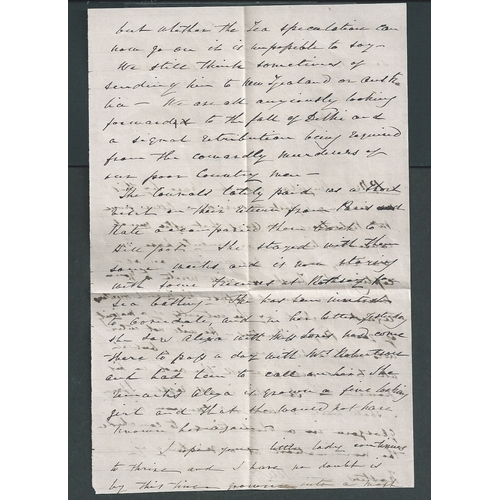 but whether the Tea speculation can
now go on it is impossible to say —
We still think sometimes of
sending him to New Zealand or Austra
lia — We are all anxiously looking
forward to the fall of Delhi and
a signal retribution being required
from the cowardly murderers of
our poor Country men —
The lately paid us a short
visit on their return from Paris and
Kate accompanied them back to
She stayed with them
some weeks and is now staying
with some friends at for
sea bathing. She has been
to and in her letter yesterday
she saw Aliza with Miss Jones had come
there to pass a day with Mrs Robertson
and had been to call on She
remarks Aliza is grown a fine looking
girl and that she would not have
known her again
I hope your little lady continues
to thrive and I have no doubt is
by this time grown into a most